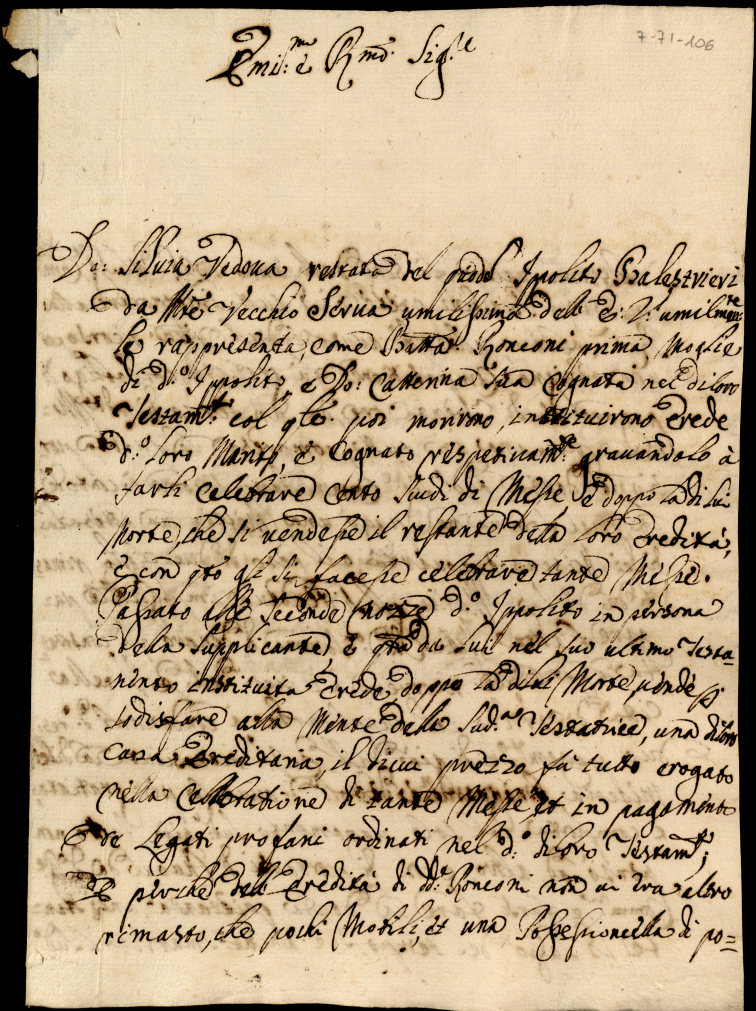 7-71-106
Emi:mo e Rmo: Sig:re
Da: Silvia Vedova restata del qdo: Ippolito Balestrieri
da Mte Vecchio Serva umilissima dell' E: V: umilmen:te
le rappresenta, come Batta: Ronconi prima Moglie
di d:o Ippolito, e Do: Catterina sua Cognata nel di loro
Testam:to col qle: poi morirono, instituirono Erede
d:o loro Marito, e Cognato respetivam:te gravandolo à
farli celebrare cento scudi di Messe, e doppo la di lui
Morte, che si vendesse il restante della loro Eredità,
e con qto gl si facesse celebrare tante Messe.
Passato alle seconde nozze d:o Ippolito in persona
della supplicante, e qta da lui nel suo ultimo Testa-
mento instituita Erede doppo la di lui Morte, vendè p
sodisfare alla Mente delle sud:e Testatrici, una di loro
casa Ereditaria, il di cui prezzo fù tutto erogato
nella celebratione di tante Messe, et in pagamento
de Legati profani ordinati nel d:o di loro Testam:to;
E perche dell' Eredità di dd:e Ronconi non vi era altro
rimasto, che pochi Mobili, et una Possessioncella di po=